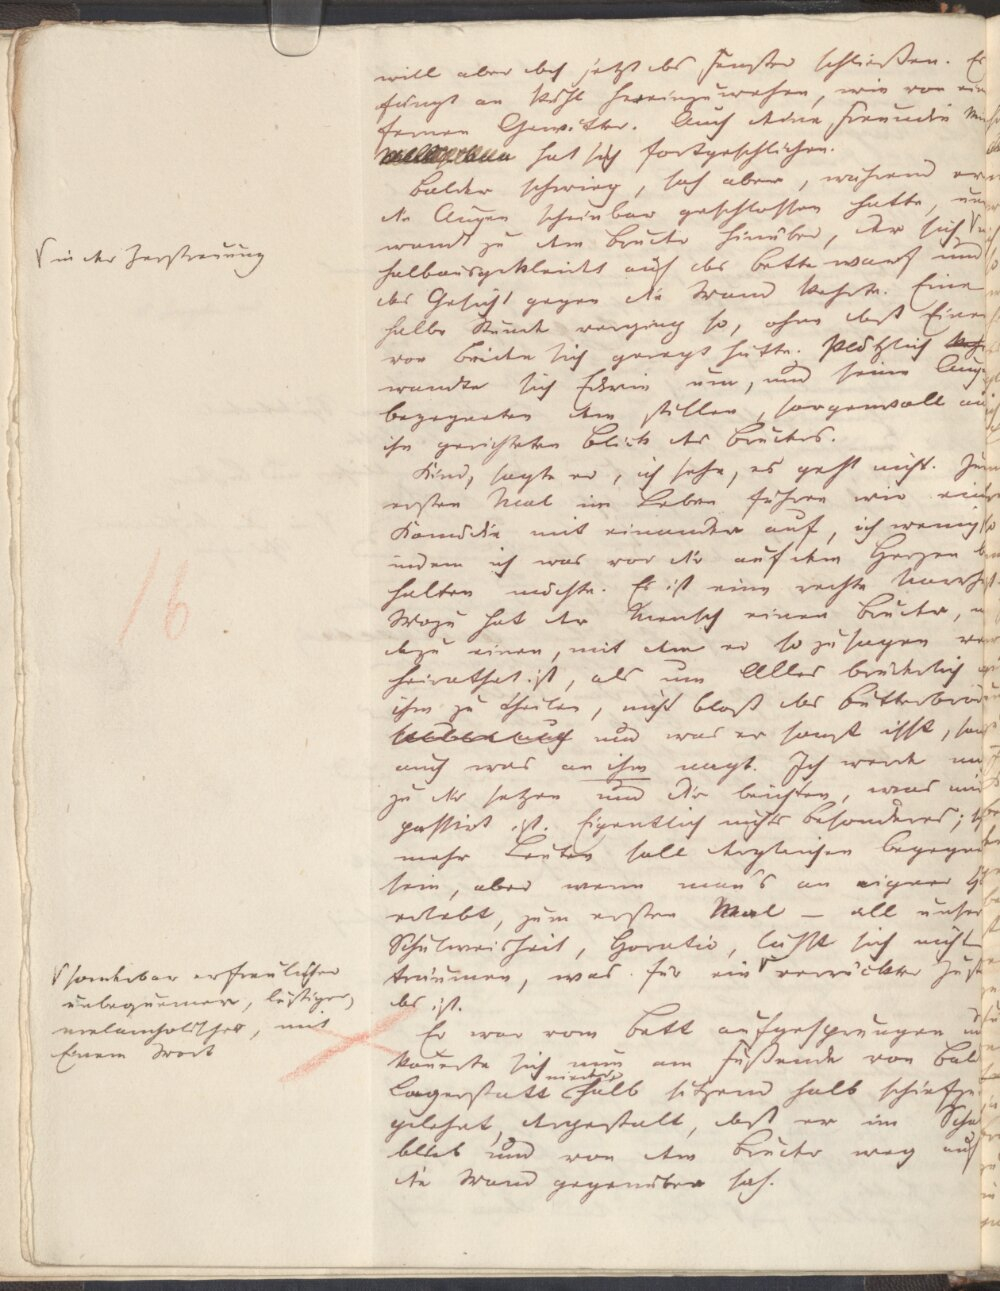 will aber doch jetzt das Fenster schließen. Es
fängt an kühl hereinzuwehen, wie von ein
fernen Gewitter. Auch deine Freundin
hat sich fortgeschlichen.
Balder schwieg, sah aber, während er
die Augen scheinbar geschlossen hatte,
wandt zu dem Bruder hinüber, der sich
√ in der Zerstreuung
halbausgekleidet auf das Bette warf und
das Gesicht gegen die Wand kehrte. Eine
halbe Stunde verging so, ohne daß Einer
von Beiden sich geregt hätte. Plötzlich
wandte sich Edwin um, und seine Aug
begegneten dem stillen, sorgenvoll auf
ihn gerichteten Blick des Bruders.
Kind, sagte er, ich sehe, es geht nicht. Zum
ersten Mal im Leben führen wir eine
Komödie mit einander auf, ich wenigst
indem ich was vor dir auf dem Herzen be
halten möchte. Es ist eine rechte Narrheit.
Wozu hat der Mensch einen Bruder,
dazu einen, mit dem er so zu sagen ver
heirathet ist, als um Alles brüderlich
ihm zu theilen, nicht bloß das Butterbrod
und was er sonst isst, son
auch was an ihm nagt. Ich werde
zu dir setzen und dir beichten, was mir
passirt ist. Eigentlich nichts Besonderes;
mehr Leuten soll dergleichen begegnet
sein, aber wenn man's an eigner
erlebt, zum ersten Mal – all unser
Schulweisheit, Horatio, läßt sich nicht
träumen, was für ein √ verrückter Zust
√ sonderbar erfreulicher
unbequemer, lustiger,
melancholischer, mit
Einem Wort
das ist.
Er war vom Bett aufgesprungen und
kauerte sich nun am Fußende von Bald
Lagerstatt nieder halb sitzend halb
gelehnt, dergestalt, daß er im Scha
blieb und von dem Bruder weg auf
die Wand gegenüber sah.
16